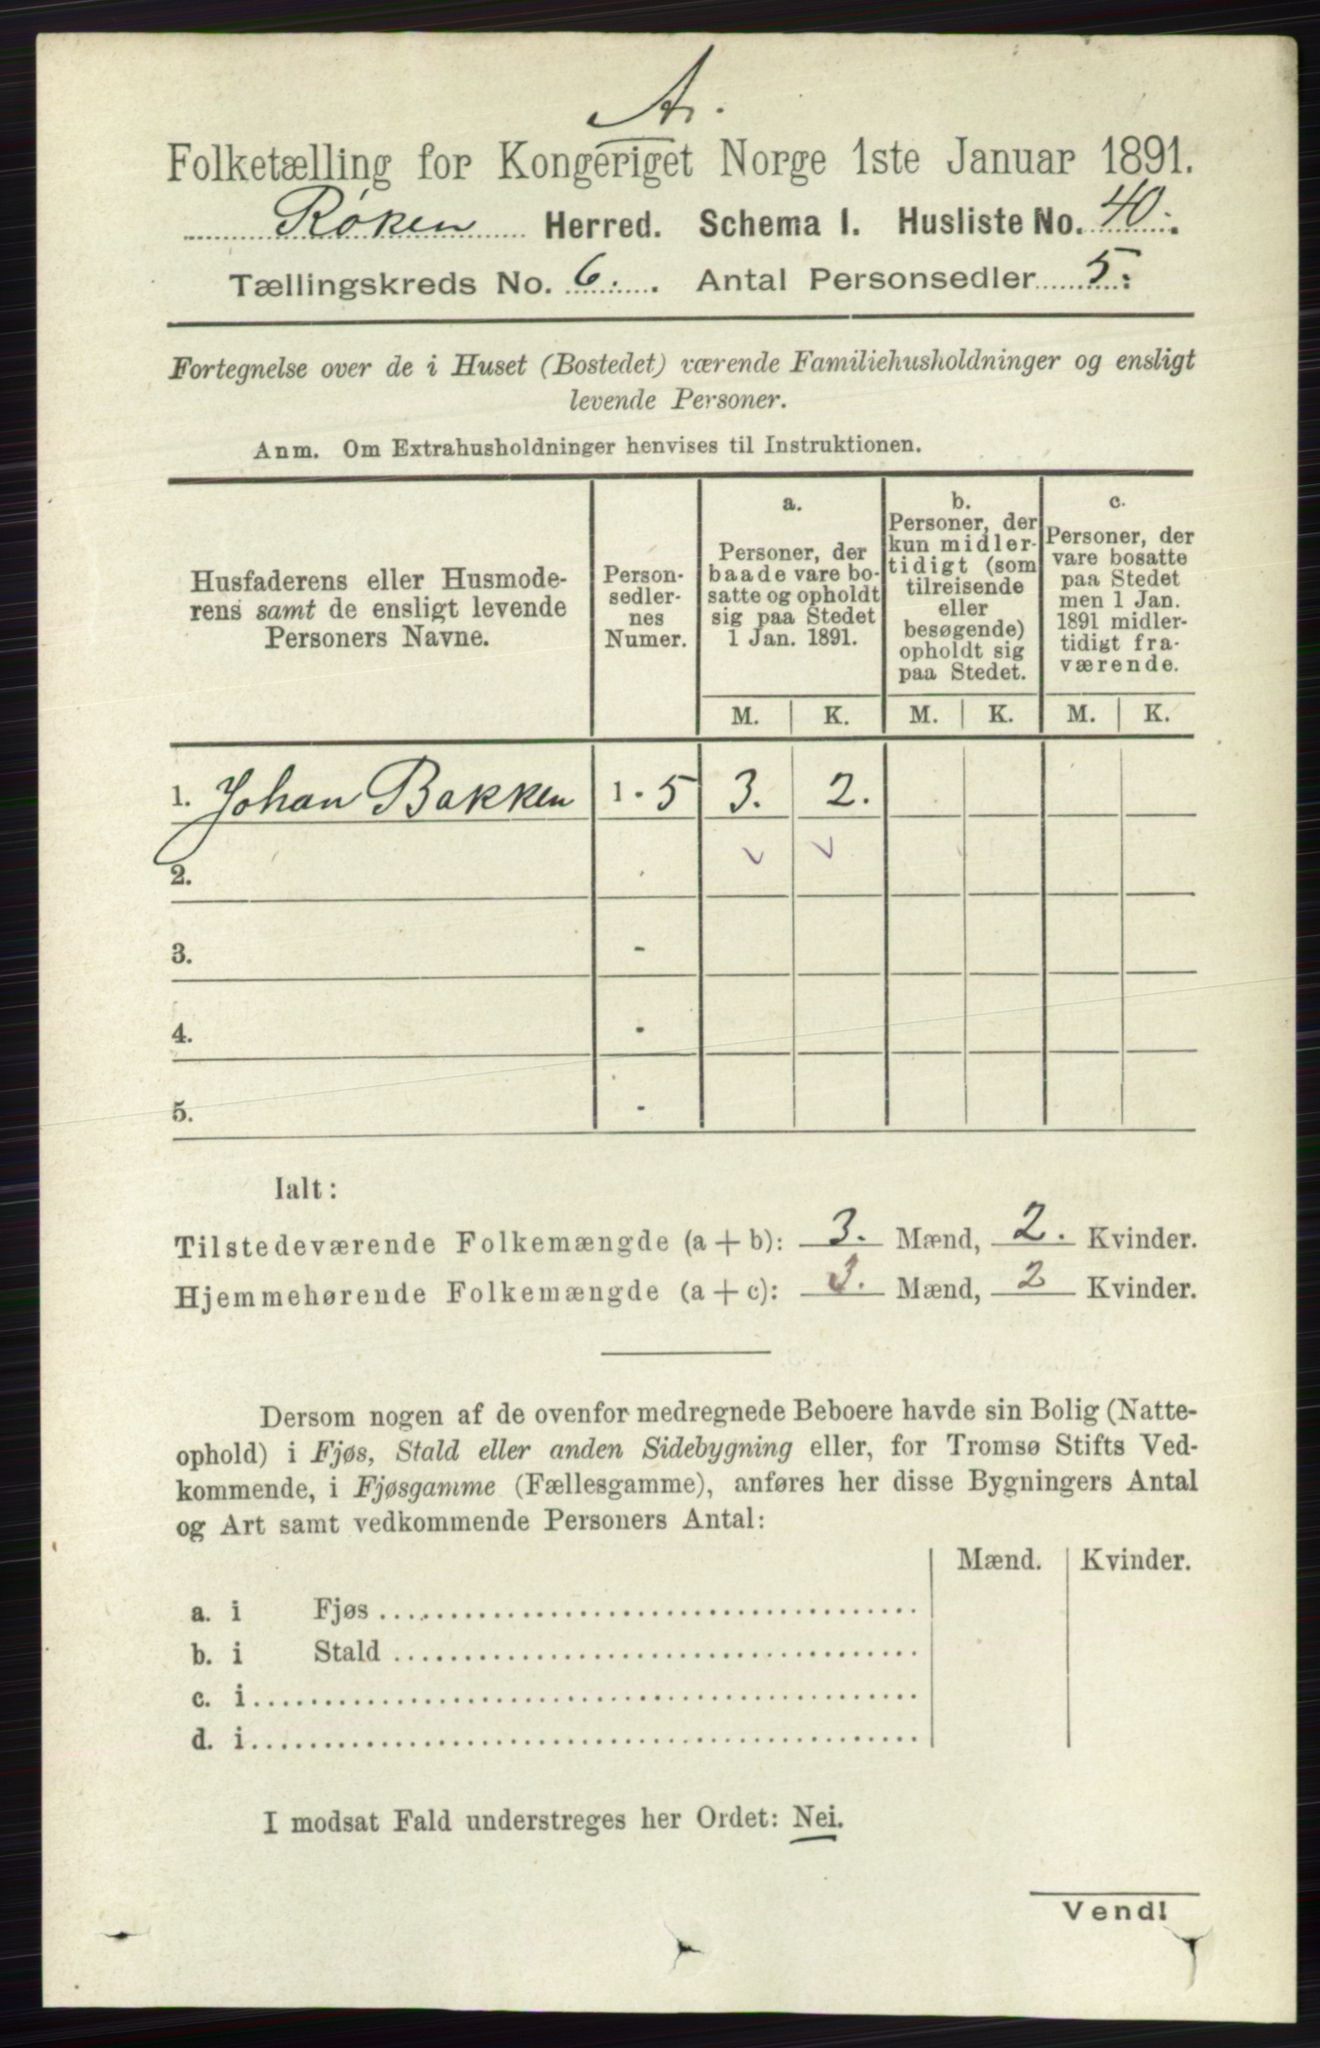 A.
Folketælling for Kongeriget Norge 1ste Januar 1891.
Røken Herred. Schema I. Husliste No. 40.
Tællingskreds No. 6. Antal Personsedler 5.
Fortegnelse over de i Huset (Bostedet) værende Familiehusholdninger og ensligt
levende Personer.
Anm. Om Extrahusholdninger henvises til Instruktionen.
Husfaderens eller Husmode-
rens samt de ensligt levende
Personers Navne.
Person-
sedler-
nes
Numer.
a.
Personer, der
baade vare bo-
satte og opholdt
sig paa Stedet
1 Jan. 1891.
b.
Personer, der
kun midler-
tidigt (som
tilreisende
eller
besøgende)
opholdt sig
paa Stedet.
c.
Personer, der
vare bosatte
paa Stedet
men 1 Jan.
1891 midler-
tidigt fra-
værende.
M. K. M. K. M. K.
1. Johan Bakken 1 - 5 3. 2.
2.
3. -
4. -
5. -
Ialt:
Tilstedeværende Folkemængde (a + b): 3. Mænd, 2. Kvinder.
Hjemmehørende Folkemængde (a + c): 3. Mænd, 2 Kvinder.
Dersom nogen af de ovenfor medregnede Beboere havde sin Bolig (Natte-
ophold) i Fjøs, Stald eller anden Sidebygning eller, for Tromsø Stifts Ved-
kommende, i Fjøsgamme (Fællesgamme), anføres her disse Bygningers Antal
og Art samt vedkommende Personers Antal:
Mænd. Kvinder.
a. i Fjøs
b. i Stald
c. i
d. i
I modsat Fald understreges her Ordet: Nei.
Vend!